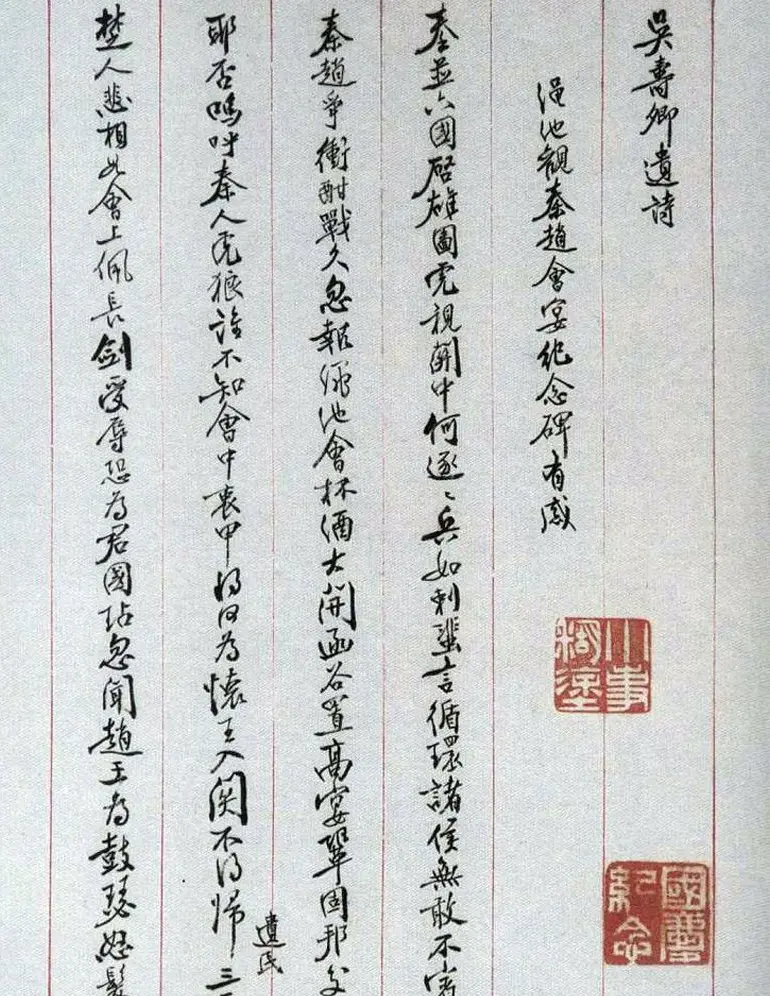 吳壽卿遺詩
渑池觀秦趙會宴纪念碑有感
秦並六國啓雄圖虎視關中何逐〻兵如刺蜚言循環諸侯無敢不
秦趙爭衡酣戰久忽報澠池會杯酒大開函谷置高宴鞏固邦交
耶否嗚呼秦人虎狼誰不知會中衷甲將何為懷王入関不得歸三
遺民
楚人悲相如會上佩長劍受辱恐為君國玷忽聞趙王為鼓瑟怒髮
小事糊塗
國慶紀念